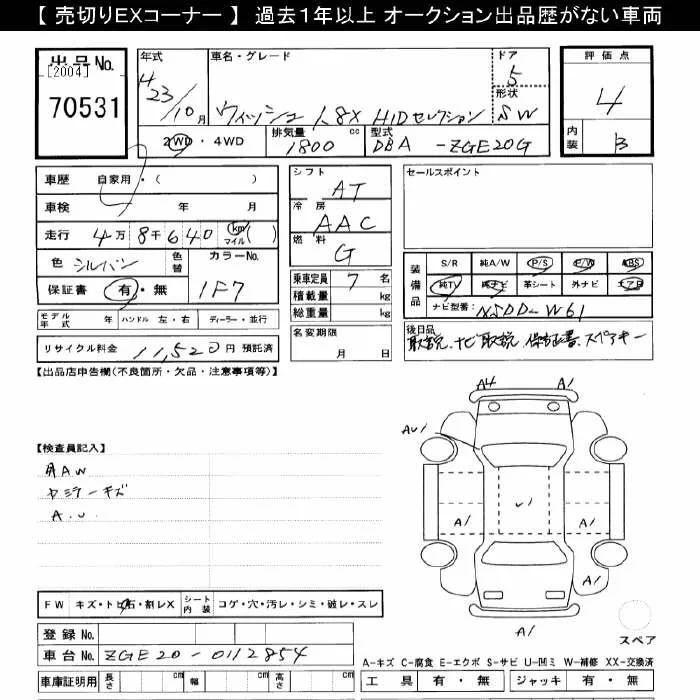 【 売切りEXコーナー 】 過去1年以上 オークション出品歴がない車両
出品No.
[2004]
70531
年式
H
23/10月
車名・グレード
ウィッシュ 1.8X HIDセレクション
ドア
5
形状
SW
評価点
4
内装
B
2WD・4WD
排気量
1800
cc
型式
DBA -ZGE20G
車歴 自家用・( )
車検 年 月
走行 4万 8千 640 km マイル( )
色 シルバー
色替
カラーNo.
1F7
保証書 有・無
モデル年式 年 ハンドル 左・右 ディーラー・並行
リサイクル料金 11,520円 預託済
シフト
AT
冷房
AAC
燃料
G
乗車定員 7 名
積載量 kg
総重量 kg
名変期限
月 日
セールスポイント
装備品
S/R 純A/W P/S P/W ABS
純TV 純ナビ 革シート 外ナビ エアB
ナビ型番: NSDD-W61
後日品
取説、ナビ取説、保証書、スペアキー
【出品店申告欄(不良箇所・欠品・注意事項等)】
【検査員記入】
A.U.
A4 A1
AU1
U1
A1 A1
A1
A1
スペア
FW キズ・トビ石・割レX
シート内装
コゲ・穴・汚レ・シミ・破レ・スレ
登録No.
車台No. ZGE20-0112854
車庫証明用 長さ cm 幅 cm 高さ cm
A-キズ C-腐食 E-エクボ S-サビ U-凹ミ W-補修 XX-交換済
工具 有・無 ジャッキ 有・無